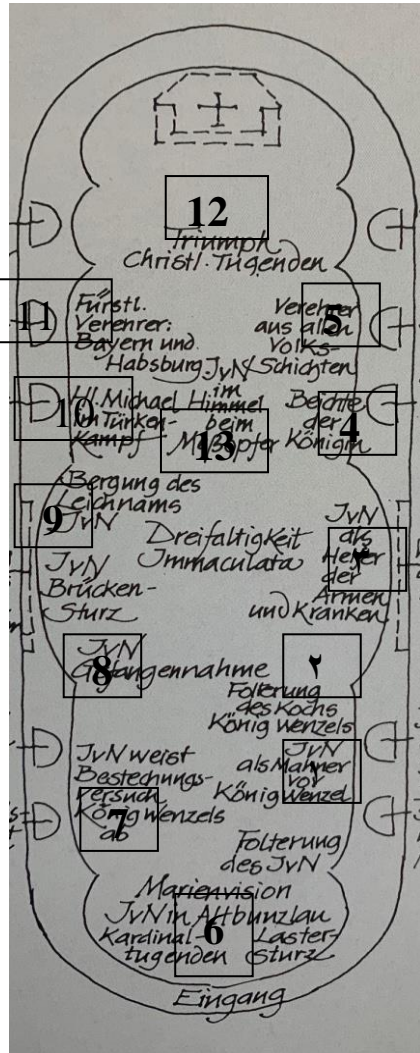 12
Triumph
Christl. Tugenden
11
Fürstl.
Verehrer:
Bayern und
Habsburg
5
Verehrer
aus allen
Volks-
Schichten
10
Hl. Michael
im Türken-
Kampf
JvN
im
Himmel
beim
Meßopfer
13
Beichte
der
Königin
4
9
Bergung des
Leichnams
JvN
Dreifaltigkeit
Immaculata
JvN
als
Helfer
der
Armen
und Kranken
٣
JvN
Brücken-
Sturz
8
JvN
Gefangennahme
٢
Folterung
des Kochs
König Wenzels
JvN weist
Bestechungs-
versuch
König Wenzels
ab
7
JvN
als Mahner
vor
König Wenzel
١
Folterung
des JvN
Marienvision
JvN in Altbunzlau
6
Kardinal-
tugenden
Laster-
sturz
Eingang